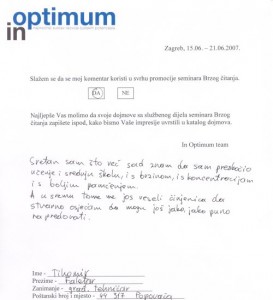 optimum
in
Zagreb, 15.06. – 21.06.2007.
Slažem se da se moj komentar koristi u svrhu promocije seminara Brzog čitanja.
DA NE
Najljepše Vas molimo da svoje dojmove sa službenog dijela seminara Brzog
čitanja zapišete ispod, kako bismo Vaše impresije uvrstili u katalog dojmova.
In Optimum team
Sretan sam što već sad znam da sam preskočio
učenje i srednju školu, i s brzinom, i s koncentracijom
i s boljim pamćenjem.
A u svemu tome me još veseli činjenica da
stvarno osjećam da mogu još jako, jako puno
napredovati.
Ime - Tihomir
Prezime - Faletar
Zanimanje - građ. tehničar
Poštanski broj i mjesto - 44 317 Popovača